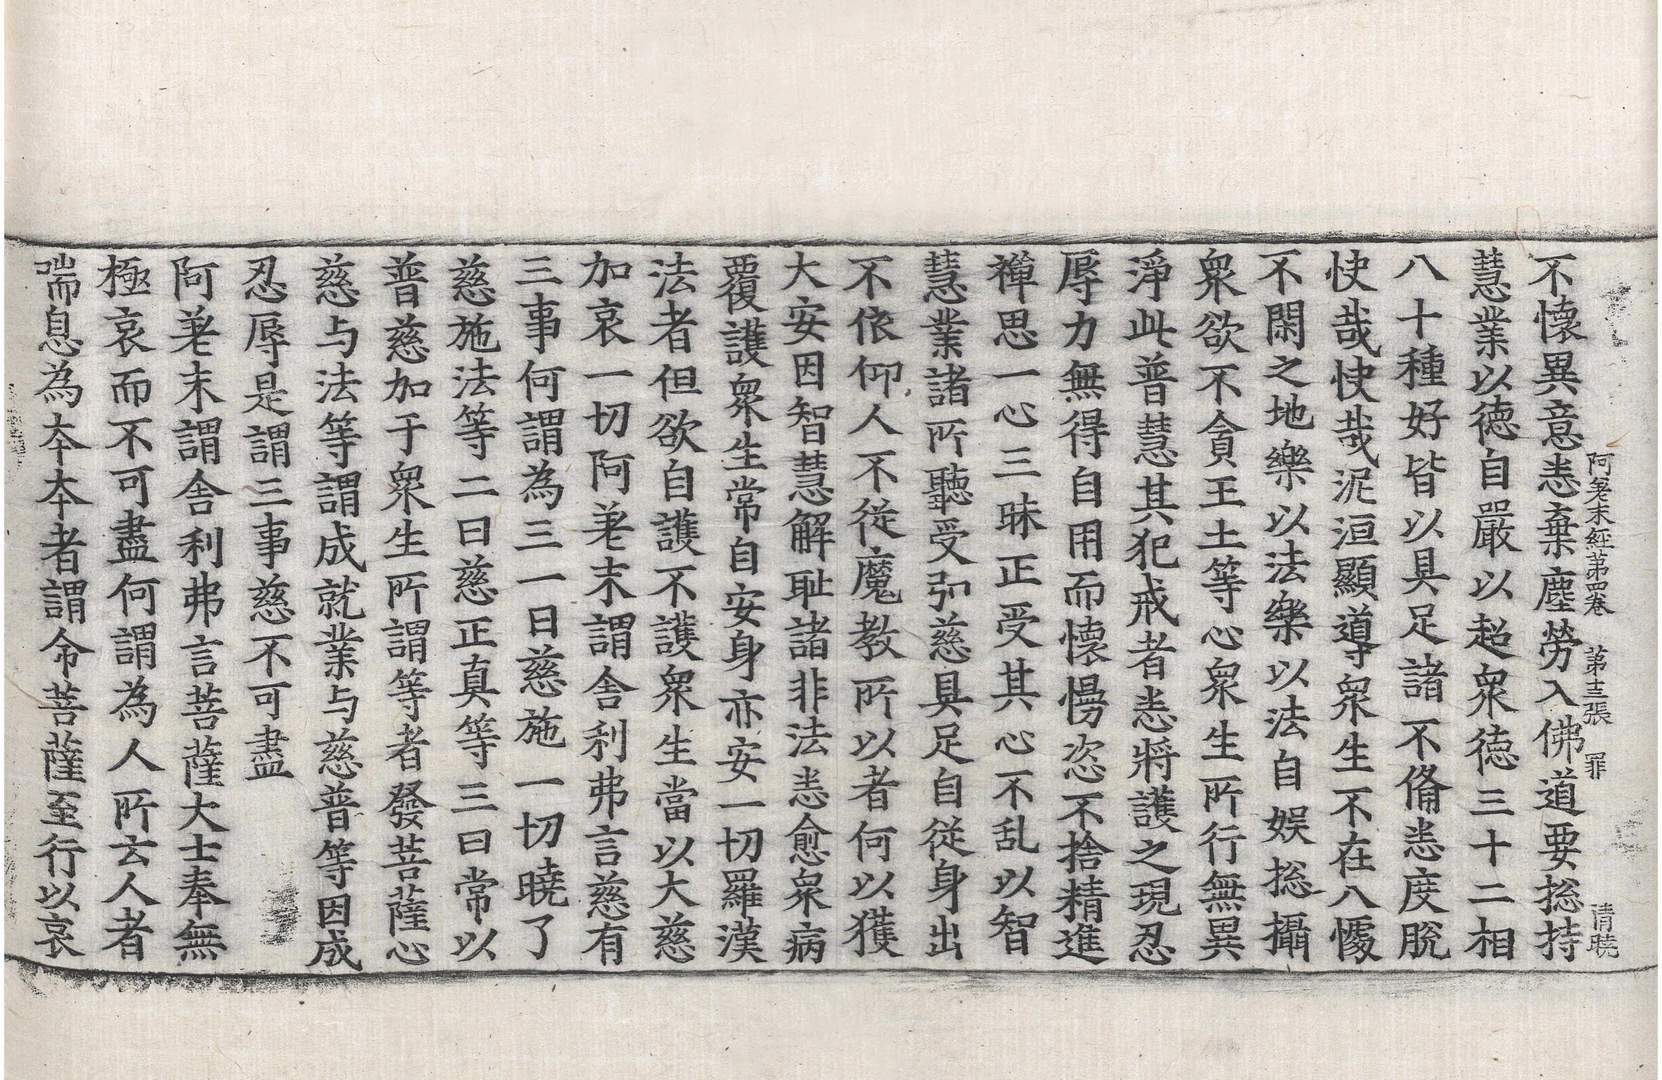 阿差末經第四卷　第十三張　罪　清曉
不懷異意恚棄塵勞入佛道要捴持
慧業以德自嚴以超衆德三十二相
八十種好皆以具足諸不俻悉度脫
快哉快哉泥洹顯導衆生不在八懮
不閑之地樂以法樂以法自娛捴攝
衆欲不貪王土等心衆生所行無異
淨此普慧其犯戒者恚將護之現忍
辱力無得自用而懷慢恣不捨精進
禪思一心三昧正受其心不乱以智
慧業諸所聽受弘慈具足自從身出
不依仰人不從魔教所以者何以獲
大安因智慧解耻諸非法恚愈衆病
覆護衆生常自安身亦安一切羅漢
法者但欲自護不護衆生當以大慈
加哀一切阿差末謂舍利弗言慈有
三事何謂為三一曰慈施一切曉了
慈施法等二曰慈正真等三曰常以
普慈加于衆生所謂等者發菩薩心
慈与法等謂成就業与慈普等因成
忍辱是謂三事慈不可盡
阿差末謂舍利弗言菩薩大士奉無
極哀而不可盡何謂為人所云人者
喘息為夲夲者謂命菩薩至行以哀